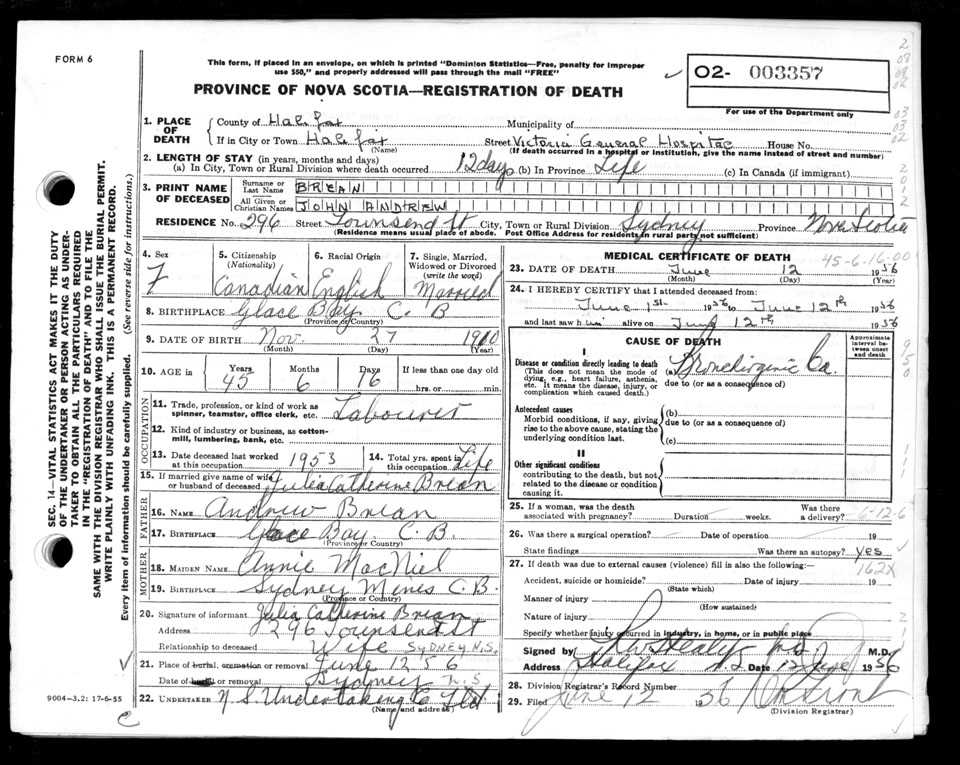 FORM 6
This form, if placed in an envelope, on which is printed "Dominion Statistics—Free, penalty for improper
use $50," and properly addressed will pass through the mail "FREE"
02- 003357
PROVINCE OF NOVA SCOTIA—REGISTRATION OF DEATH
For use of the Department only
1. PLACE OF DEATH
County of Halifax Municipality of
If in City or Town Halifax Street Victoria General Hospital House No.
(Name) (If death occurred in a hospital or institution, give the name instead of street and number)
2. LENGTH OF STAY (in years, months and days)
(a) In City, Town or Rural Division where death occurred 12 days (b) In Province Life (c) In Canada (if immigrant)
3. PRINT NAME OF DECEASED
Surname or Last Name BREAN
All Given or Christian Names JOHN ANDREW
RESIDENCE No. 296 Street Townsend St City, Town or Rural Division Sydney Province Nova Scotia
(Residence means usual place of abode. Post Office Address for residents in rural parts not sufficient)
4. Sex
5. Citizenship (Nationality) Canadian
6. Racial Origin English
7. Single, Married, Widowed or Divorced (write the word) Married
8. BIRTHPLACE Glace Bay C. B
(Province or Country)
9. DATE OF BIRTH Nov. 27 1910
(Month) (Day) (Year)
10. AGE in Years 45 Months 6 Days 16 If less than one day old
hrs. or min.
OCCUPATION
11. Trade, profession, or kind of work as
spinner, teamster, office clerk, etc. Labourer
12. Kind of industry or business, as cotton-
mill, lumbering, bank, etc.
13. Date deceased last worked
at this occupation 1953
14. Total yrs. spent in
this occupation Life
15. If married give name of wife
or husband of deceased Julia Catherine Brean
FATHER
16. NAME Andrew Brean
17. BIRTHPLACE Glace Bay C. B.
(Province or Country)
MOTHER
18. MAIDEN NAME Annie MacNiel
19. BIRTHPLACE Sydney Mines C. B.
(Province or Country)
20. Signature of informant Julia Catherine Brean
Address 296 Townsend St
Relationship to deceased Wife SYDNEY N.S.
21. Place of burial, cremation or removal June 12 56
Date of burial or removal Sydney N.S
22. UNDERTAKER N. S. Undertaking Co Ltd
(Name and address)
9004-3.2: 17-6-55
MEDICAL CERTIFICATE OF DEATH
45-6-16-00
23. DATE OF DEATH June 12 1956
(Month) (Day) (Year)
24. I HEREBY CERTIFY that I attended deceased from:
June 1st 1956 to June 12th 1956
and last saw him alive on June 12th 1956
CAUSE OF DEATH
Approximate interval between onset and death
I
Disease or condition directly leading to death
(This does not mean the mode of
dying, e.g., heart failure, asthenia,
etc. It means the disease, injury, or
complication which caused death.)
(a) Bronchiogenic Ca.
due to (or as a consequence of)
Antecedent causes
Morbid conditions, if any, giving
rise to the above cause, stating the
underlying condition last.
(b)
due to (or as a consequence of)
(c)
II
Other significant conditions
contributing to the death, but not
related to the disease or condition
causing it.
25. If a woman, was the death
associated with pregnancy? Duration weeks. Was there
a delivery? 6-12-6
26. Was there a surgical operation? Date of operation 19
State findings Was there an autopsy? Yes
27. If death was due to external causes (violence) fill in also the following: 162X
Accident, suicide or homicide? Date of injury 19
(State which)
Manner of injury
(How sustained)
Nature of injury
Specify whether injury occurred in industry, in home, or in public place
Signed by
Address Halifax N.S. Date 12 June 1956
28. Division Registrar's Record Number
29. Filed June 12 1956
(Division Registrar)
SEC. 14—VITAL STATISTICS ACT MAKES IT THE DUTY
OF THE UNDERTAKER OR PERSON ACTING AS UNDER-
TAKER TO OBTAIN ALL THE PARTICULARS REQUIRED
IN THE "REGISTRATION OF DEATH" AND TO FILE THE
SAME WITH THE DIVISION REGISTRAR WHO SHALL ISSUE THE BURIAL PERMIT.
WRITE PLAINLY WITH UNFADING INK. THIS IS A PERMANENT RECORD.
Every item of information should be carefully supplied. (See reverse side for instructions.)